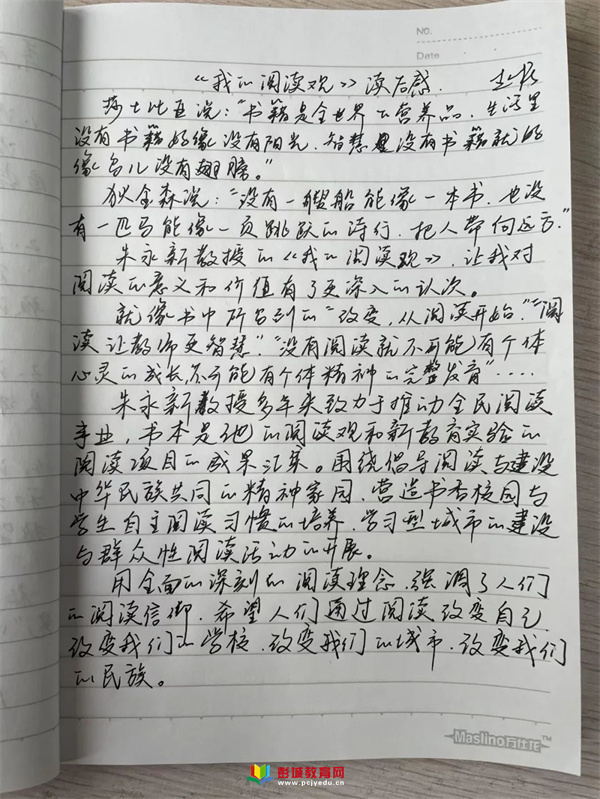 NO.
Date
《我的阅读观》读后感.
莎士比亚说:“书籍是全世界的营养品,生活里
没有书籍好像没有阳光,智慧里没有书籍就好
像鸟儿没有翅膀。”
狄金森说:“没有一艘船能像一本书,也没
有一匹马能像一页跳跃的诗行,把人带向远方.”
朱永新教授的《我的阅读观》,让我对
阅读的意义和价值有了更深入的认次。
就像书中所写到的“改变,从阅读开始.”“阅
读让教师更智慧”.“没有阅读就不可能有个体
心灵的成长,不可能有个体精神的完整发育”……
朱永新教授多年来致力于推动全民阅读
事业,书本是他的阅读观和新教育实验的
阅读项目的成果汇集。围绕倡导阅读与建设
中华民族共同的精神家园,营造书香校园与
学生自主阅读习惯的培养,学习型城市的建设
与群众性阅读活动的开展。
用全面的深刻的阅读理念,强调了人们
的阅读信仰,希望人们通过阅读改变自己
改变我们的学校,改变我们的城市,改变我们
的民族。
Maslino万仕龙™
彭城教育网
www.pcjyedu.cn